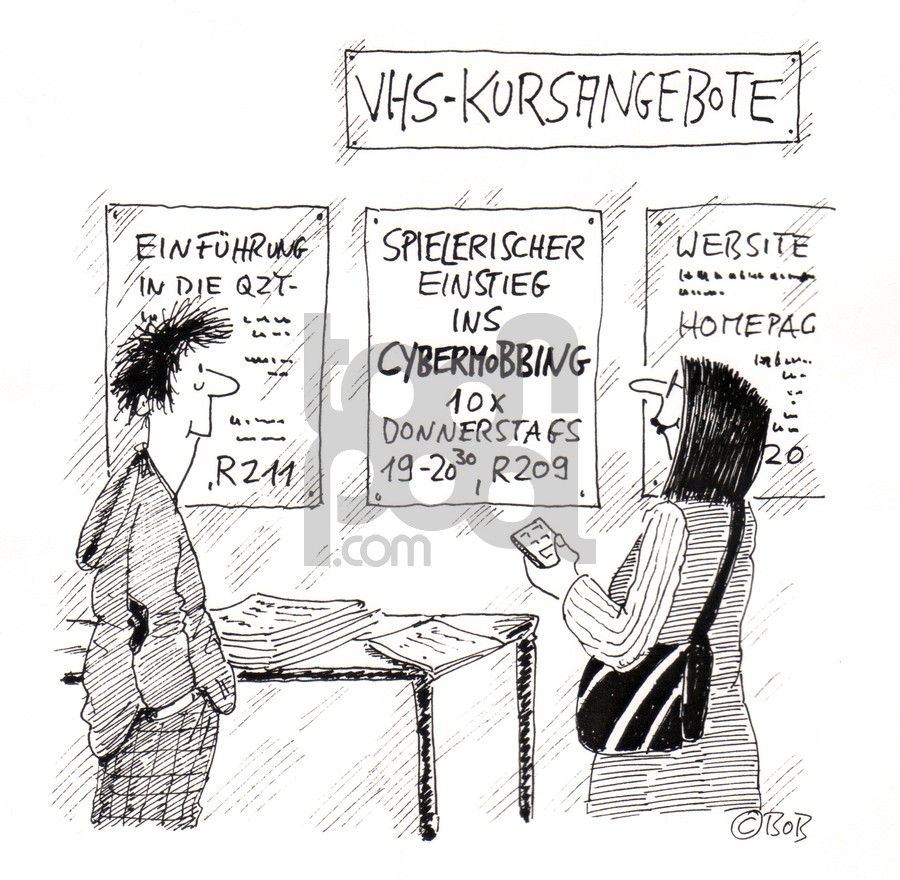 VHS-KURSANGEBOTE
EINFÜHRUNG
IN DIE QZT-
,R211
SPIELERISCHER
EINSTIEG
INS
CYBERMOBBING
10 X
DONNERSTAGS
19-20³⁰, R209
WEBSITE
HOMEPAG
20
toonpool
.com
©BOB